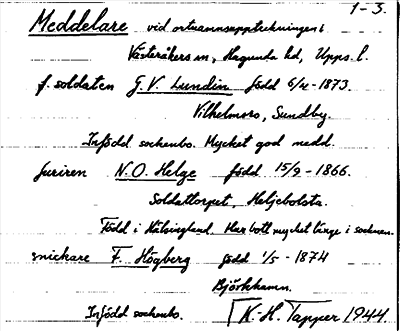 1-3.
Meddelare vid ortnamnsuppteckningen i
Västeråkers sn, Hagunda hd, Upps. l.
f. soldaten G. V. Lundin född 6/4-1873.
Vilhelmsro, Sundby.
Infödd sockenbo. Mycket god medd.
juriren N. O. Helge född 15/9-1866.
Soldattorpet, Heljebolsta.
Född i Hälsingland. Har bott mycket länge i socknen.
snickare F. Högberg född 1/5-1874
Björkhamn.
Infödd sockenbo. K.-H. Tapper 1944.